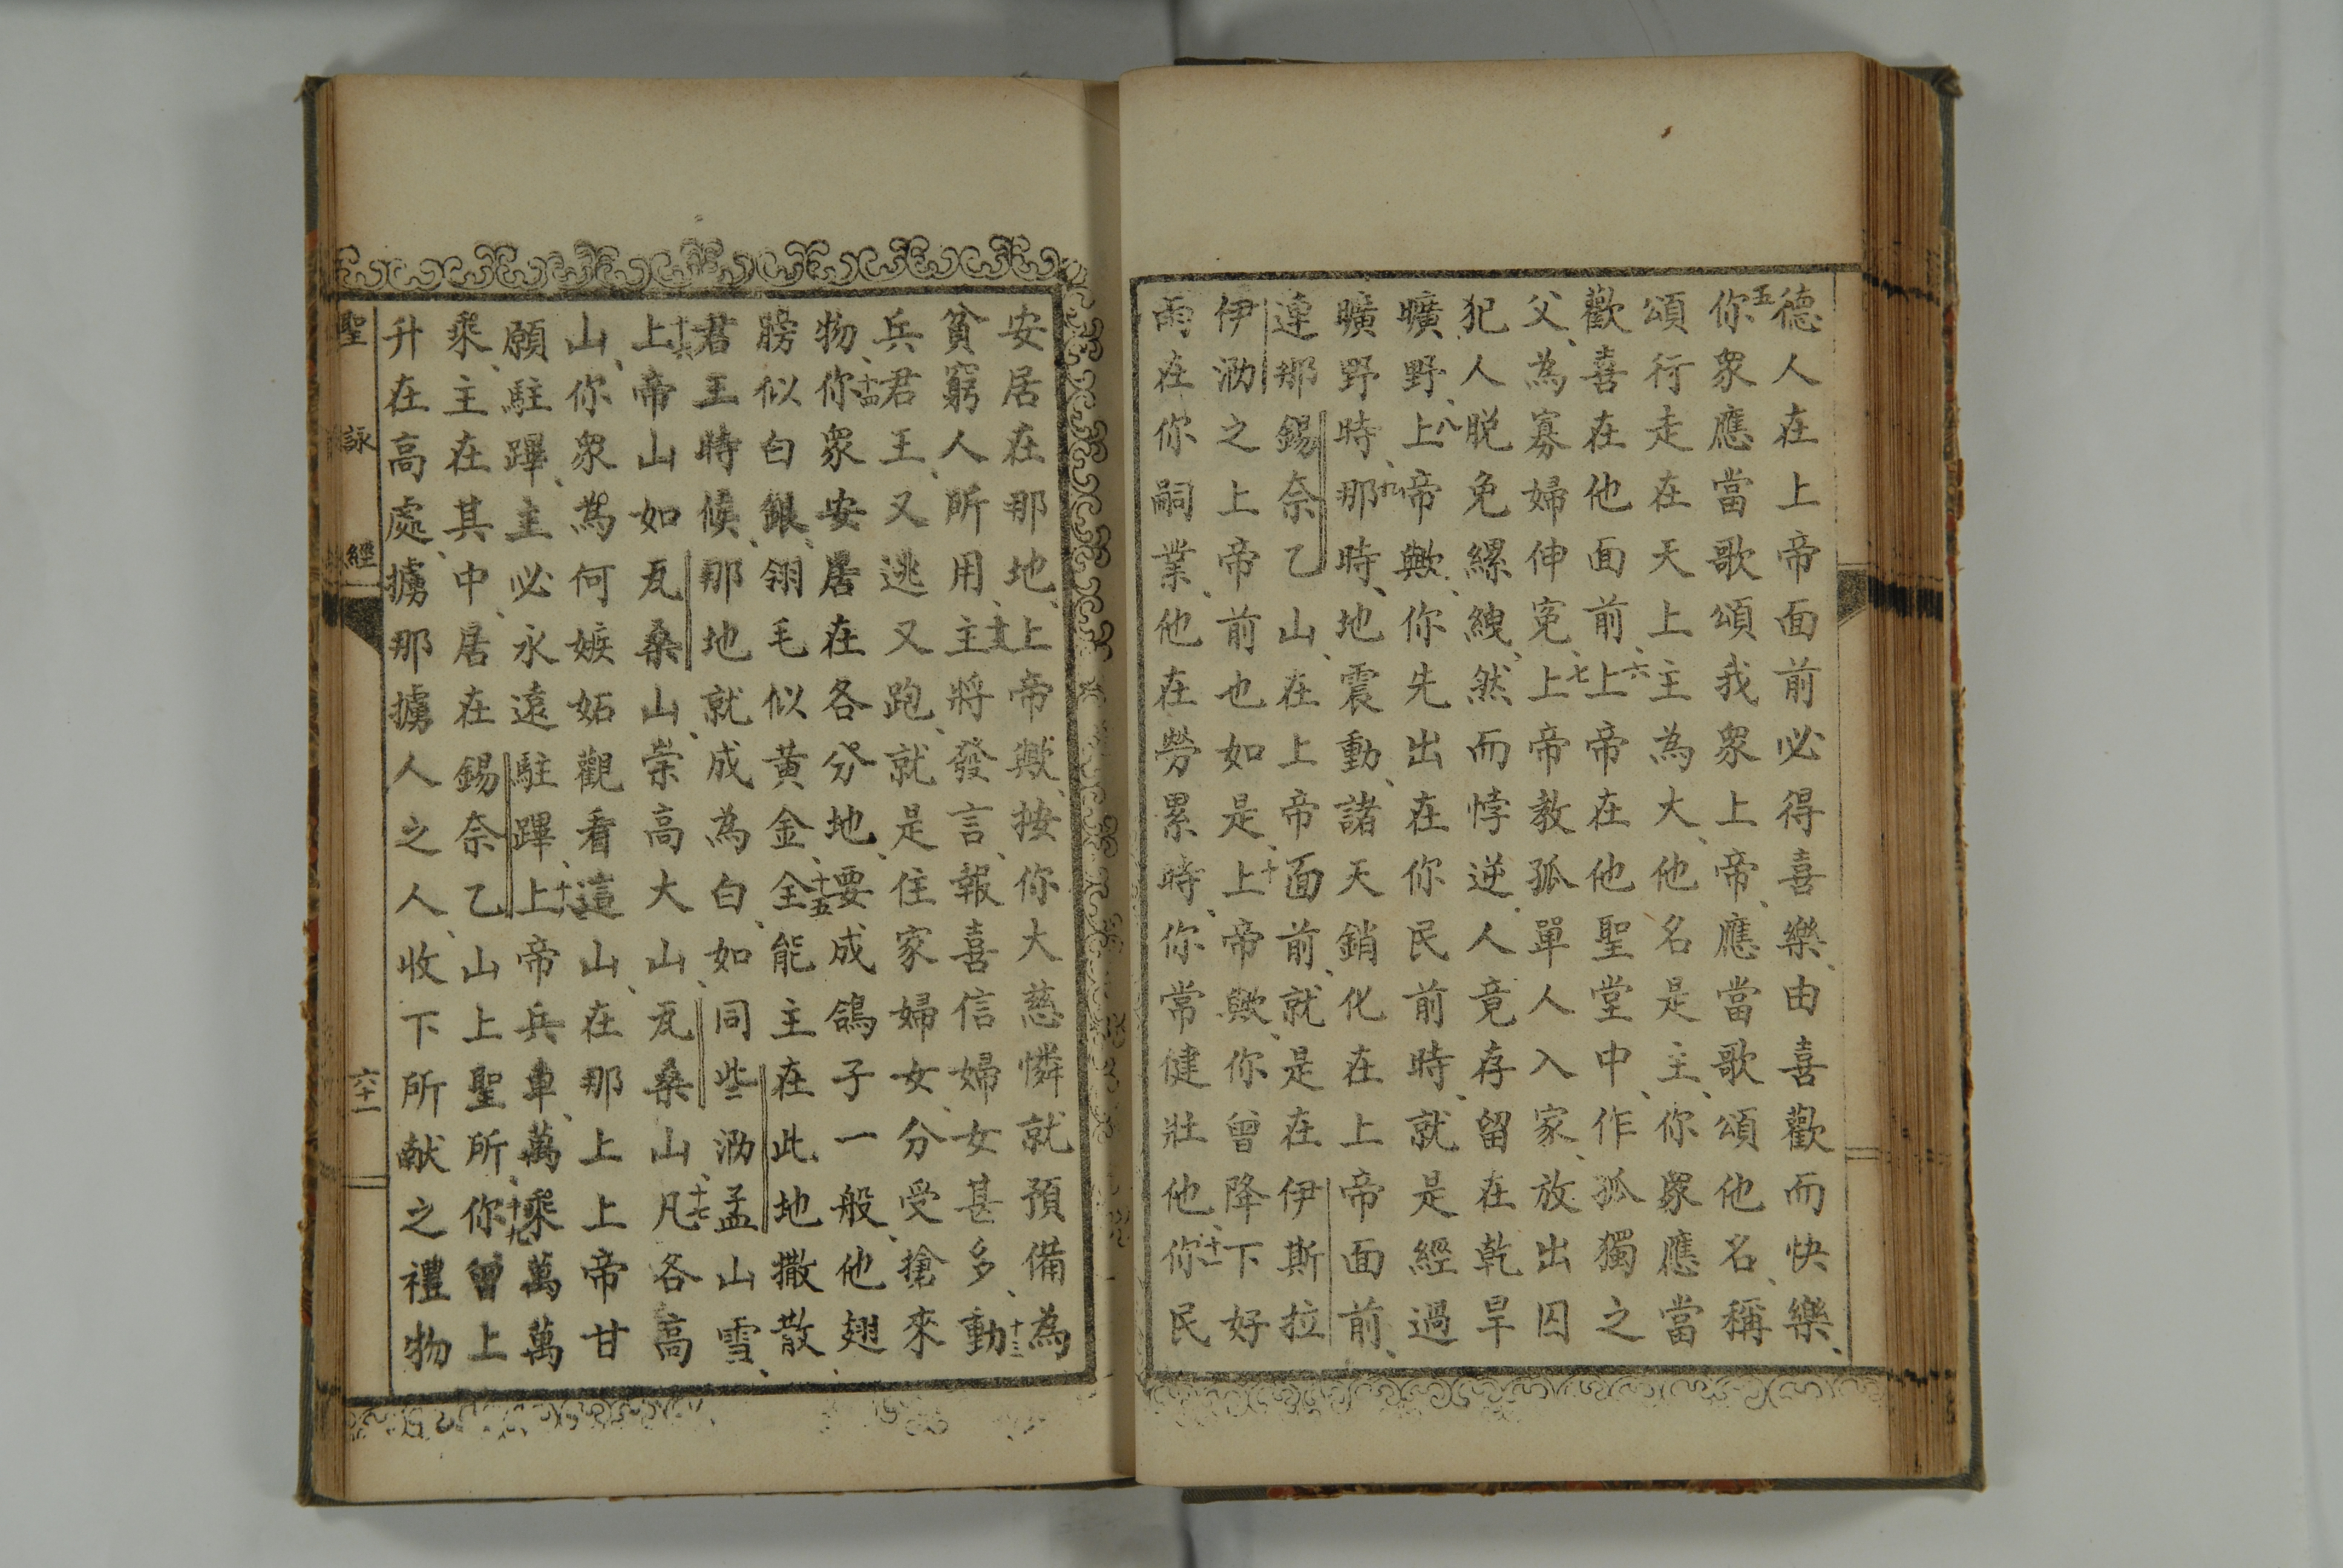 德人在上帝面前必得喜樂、由喜歡而快樂、
五你衆應當歌頌我衆上帝、應當歌頌他名、稱
頌行走在天上主為大、他名是主、你衆應當
歡喜在他面前、六上帝在他聖堂中、作孤獨之
父、為寡婦伸寃、七上帝教孤單人入家、放出囚
犯人脱免縲絏、然而悖逆人竟存留在乾旱
曠野、八上帝歟、你先出在你民前時、就是經過
曠野時、九那時、地震動、諸天銷化在上帝面前、
連那錫奈乙山、在上帝面前、就是在伊斯拉
伊泐之上帝前也如是、十上帝歟、你曾降下好
雨在你嗣業、他在勞累時、你常健壯他、十一你民
安居在那地、上帝歟、按你大慈憐就預備為
貧窮人所用、十二主將發言、報喜信婦女甚多、十三動
兵君王、又逃又跑、就是住家婦女、分受搶來
物、十四你衆安居在各分地、要成鴿子一般、他翅
膀似白銀、翎毛似黃金、十五全能主在此地撒散
君王時候、那地就成為白、如同些泐孟山雪、
十六上帝山如瓦桑山、崇高大山、瓦桑山、十七凡各高
山、你衆為何嫉妬觀看這山、在那上上帝甘
願駐蹕、主必永遠駐蹕、十八上帝兵車、萬乘萬萬
乘、主在其中、居在錫奈乙山上聖所、十九你曾上
升在高處、擄那擄人之人、收下所献之禮物
聖詠經
六十一